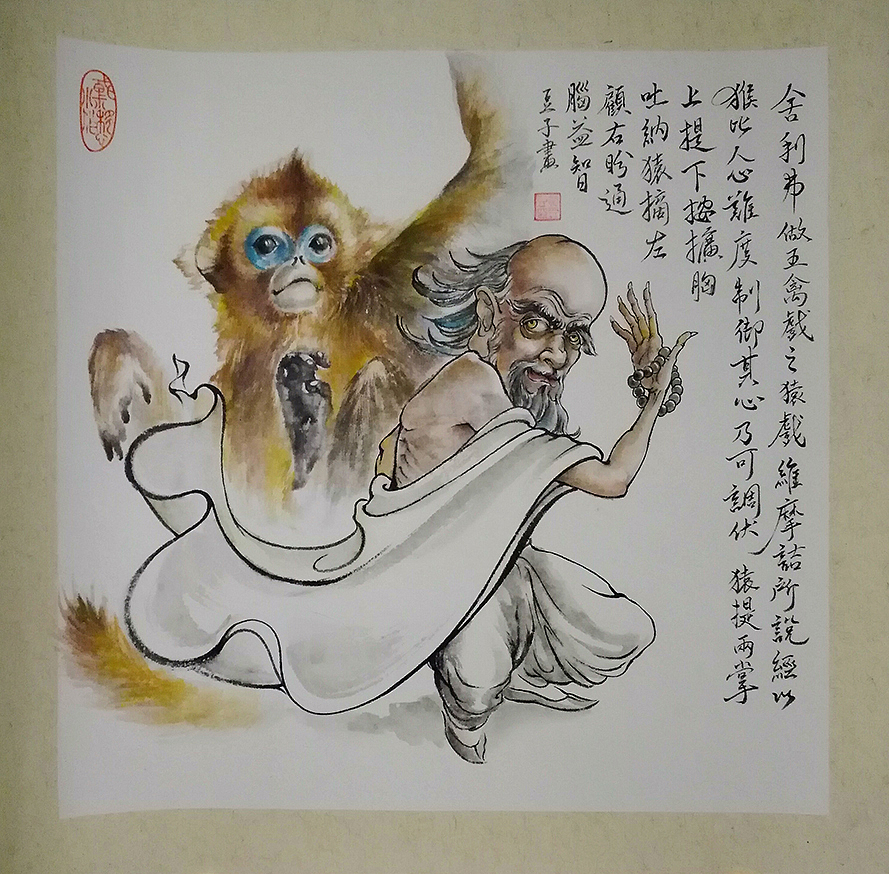 舍利弗做五禽戲之猿戲維摩詰所說經以
猴比人心難度制御其心乃可調伏 猿提兩掌
上提下按擴胸
吐納猿摘左
顧右盼通
腦益智
豆子畫